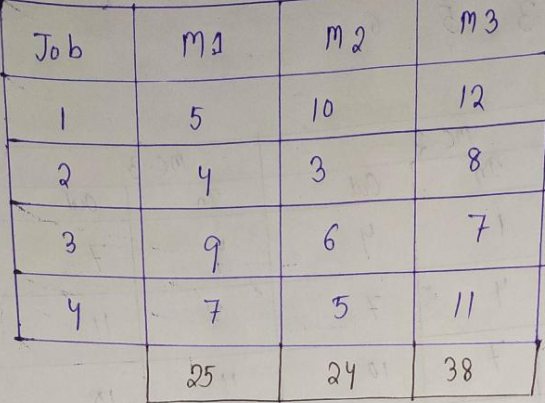 Job M1 M2 M3
1 5 10 12
2 4 3 8
3 9 6 7
4 7 5 11
25 24 38